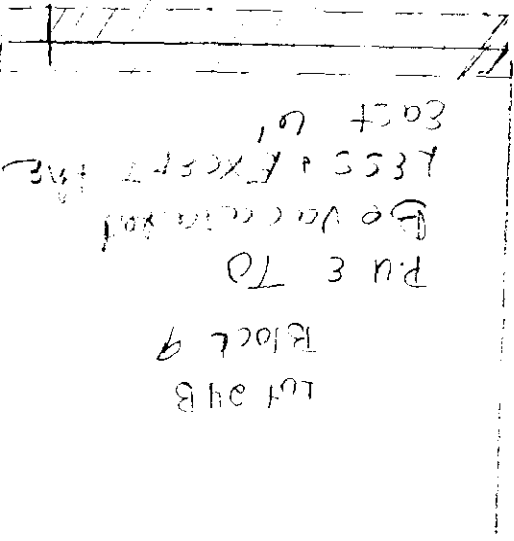 Lot 24B
Block 9
P.U.E TO
Be Vaccinated
LESS & EXCEPT the
East 6'